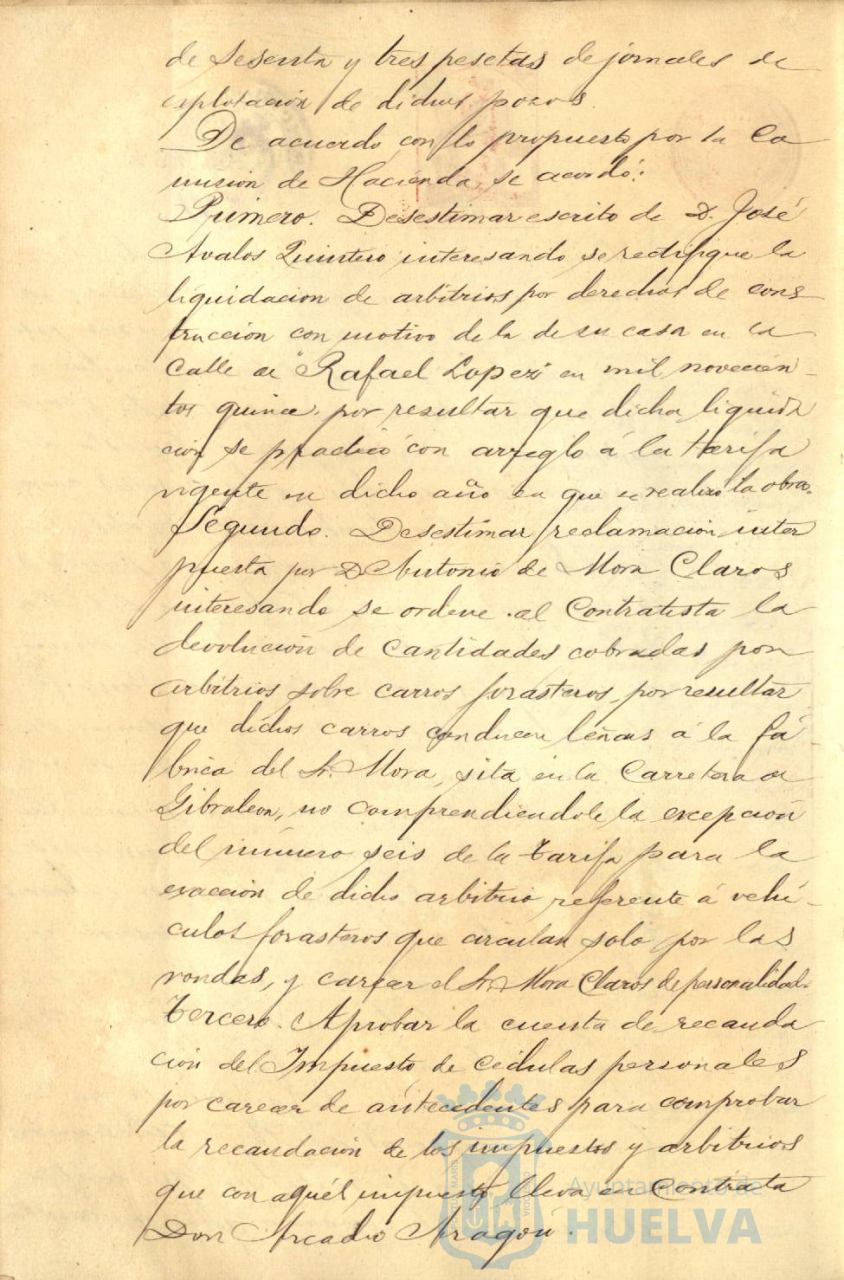 de sesenta y tres pesetas de jornales de
esplotación de dichos pozos.
De acuerdo con lo propuesto por la Co
misión de Hacienda, se acordó:
Primero. Desestimar escrito de D. José
Avalos Quintero interesando se rectifique la
liquidación de arbitrios por derechos de cons
trucción con motivo de la de su casa en la
Calle de "Rafael Lopez" en mil novecien-
tos quince, por resultar que dicha liquida
ción se practicó con arreglo á la tarifa
vigente en dicho año en que se realizó la obra.
Segundo. Desestimar reclamación inter
puesta por D Antonio de Mora Claros
interesando se ordene al Contratista la
devolución de cantidades cobradas por
arbitrios sobre carros forasteros, por resultar
que dichos carros conducen leñas á la fá-
brica del Sr. Mora, sita en la Carretera de
Gibraleon, no comprendiendole la excepción
del número seis de la tarifa para la
exacción de dicho arbitrio referente á vehí-
culos forasteros que circulan solo por las
rondas, y carecer el Sr. Mora Claros de personalidad.
Tercero. Aprobar la cuenta de recauda
ción del Impuesto de cédulas personales
por carecer de antecedentes para comprobar
la recaudación de los impuestos y arbitrios
que con aquél impuesto lleva en Contrata
Don Arcadio Aragón.
Ayuntamiento de
HUELVA